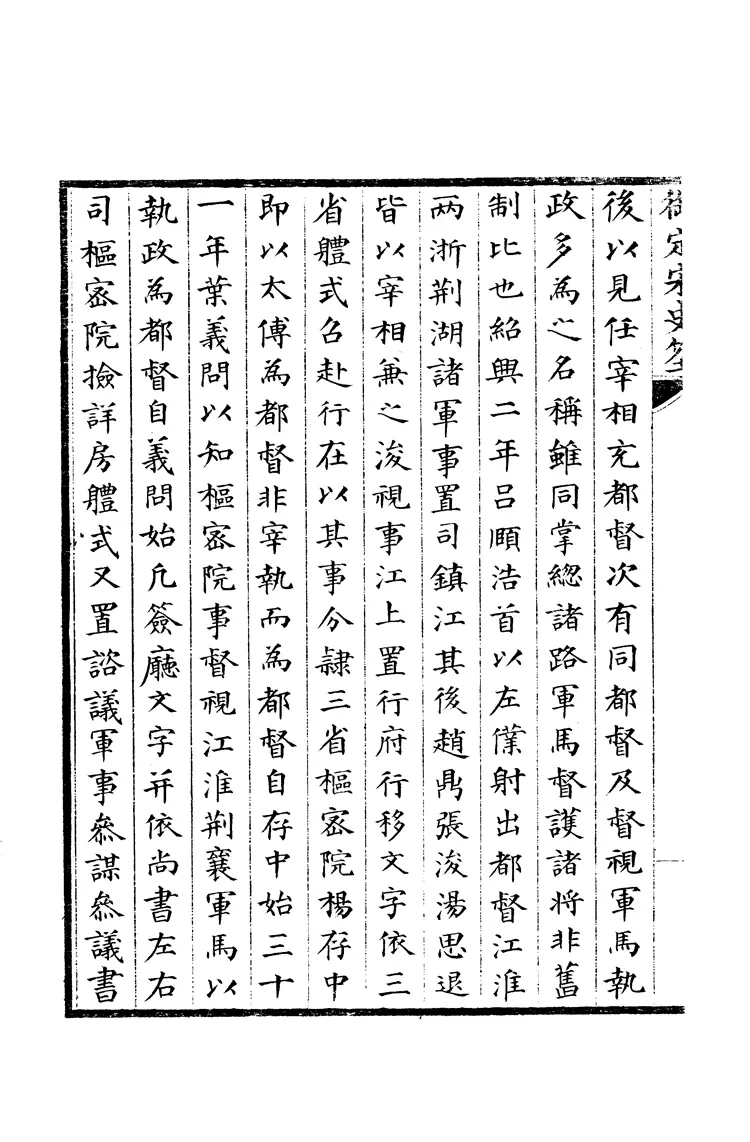 後以見任宰相充都督次有同都督及督視軍馬執
政多為之名稱雖同掌總諸路軍馬督護諸將非舊
制比也紹興二年呂頤浩首以左僕射出都督江淮
兩浙荆湖諸軍事置司鎮江其後趙鼎張浚湯思退
皆以宰相兼之浚視事江上置行府行移文字依三
省體式召赴行在以其事分隸三省樞宻院楊存中
即以太傅為都督非宰執而為都督自存中始三十
一年葉義問以知樞宻院事督視江淮荆襄軍馬以
執政為都督自義問始凡簽廳文字并依尚書左右
司樞宻院撿詳房體式又置諮議軍事叅謀叅議書